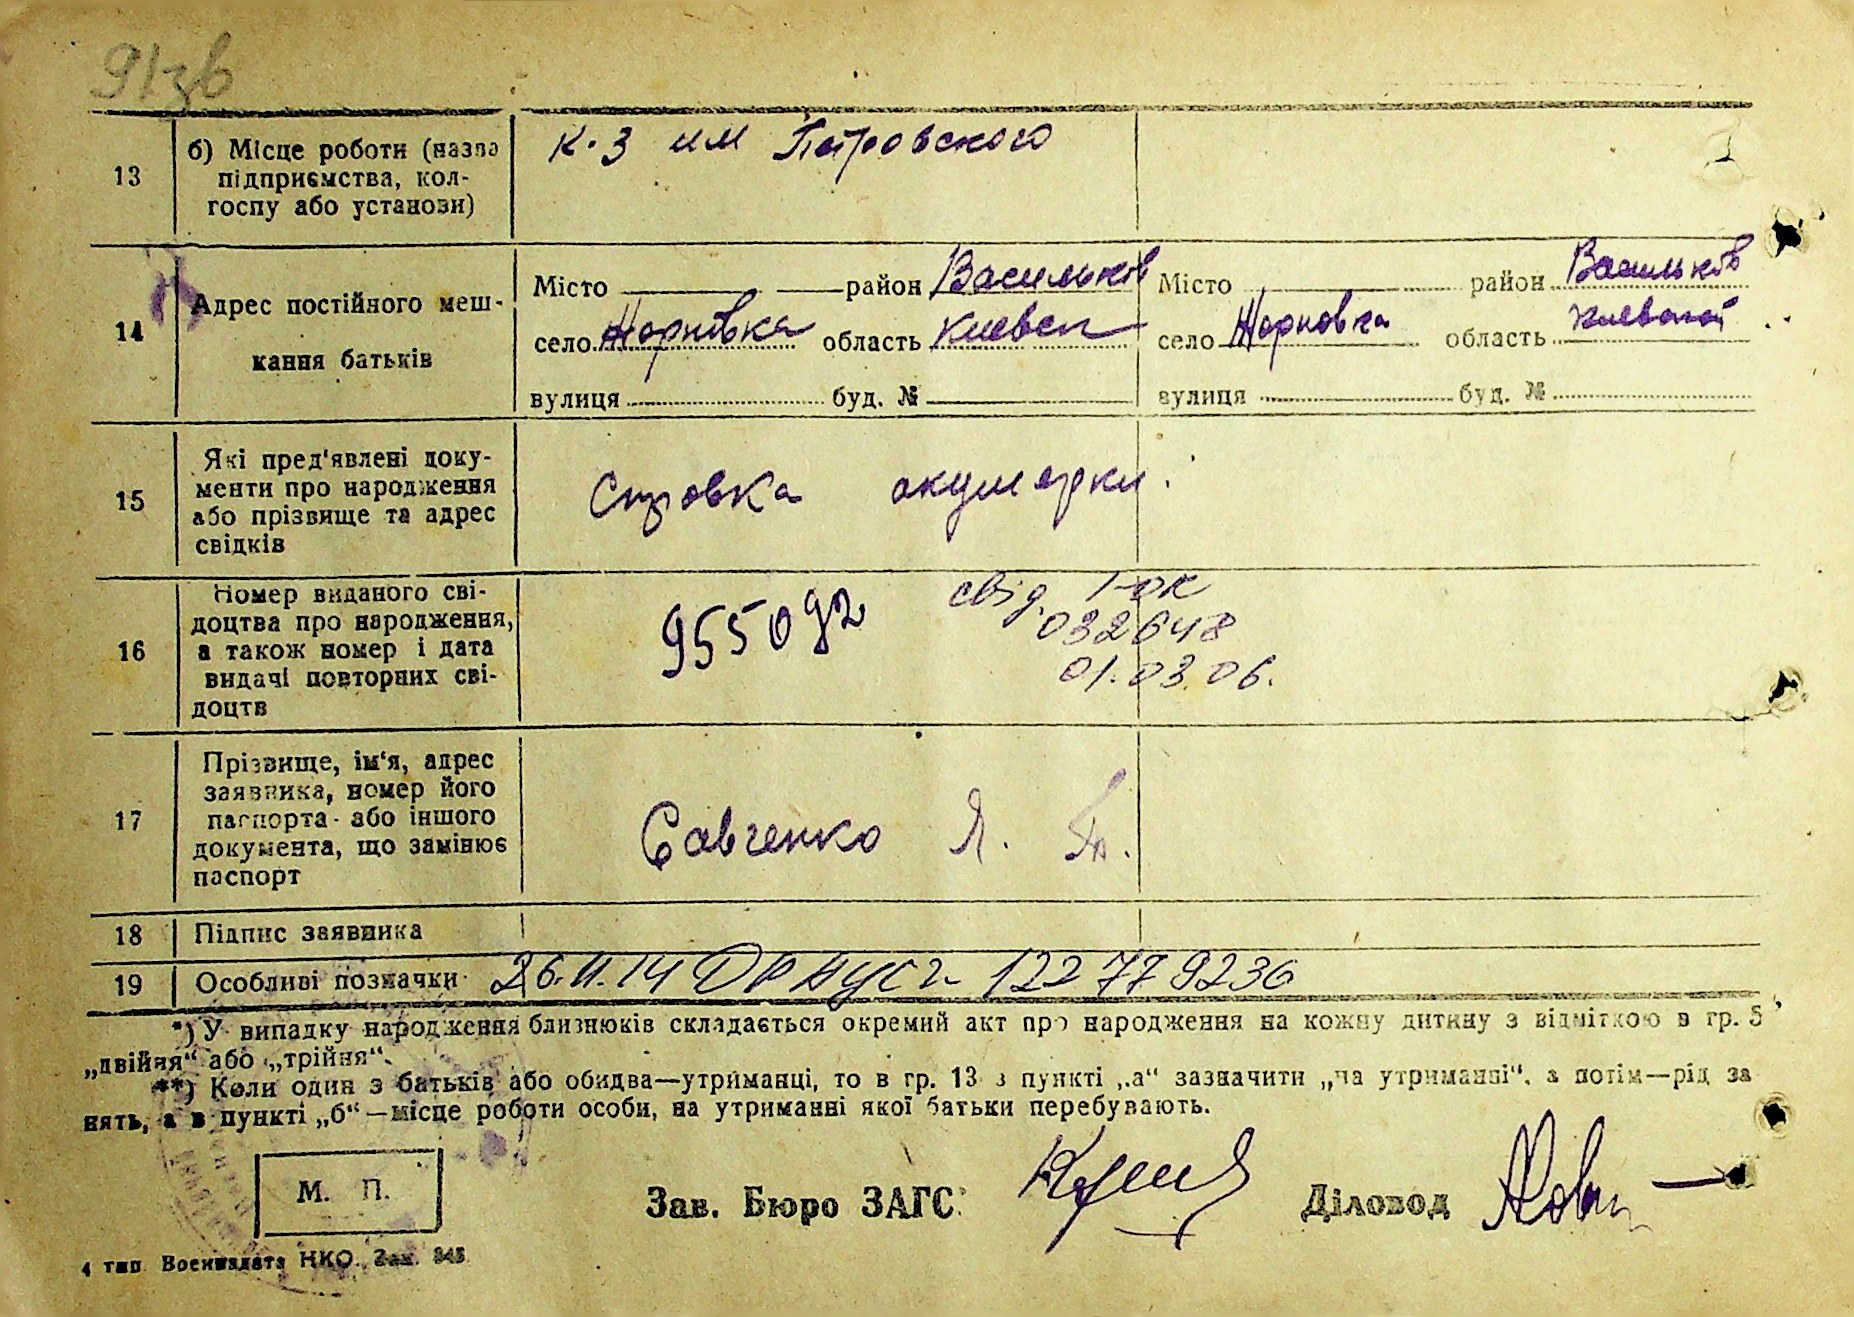 91зв
13 б) Місце роботи (назва підприємства, колгоспу або установи) к-з им Петровского
14 Адрес постійного мешкання батьків
Місто район Васильков Місто район Васильков
село Жорновка область Киевск село Жорновка область Киевской
вулиця буд. № вулиця буд. №
15 Які пред'явлені документи про народження або прізвище та адрес свідків Справка акушерки
16 Номер виданого свідоцтва про народження, а також номер і дата видачі повторних свідоцтв 955092 свід. 1-ок
032648
01.03.06.
17 Прізвище, ім'я, адрес заявника, номер його паспорта або іншого документа, що замінює паспорт Савченко Я.
18 Підпис заявника
19 Особливі позначки 26.11.14 122779236
*) У випадку народження близнюків складається окремий акт про народження на кожну дитину з відміткою в гр. 5
„двійня“ або „трійня“.
**) Коли один з батьків або обидва—утриманці, то в гр. 13 з пункті „а“ зазначити „на утриманні“, а потім—рід за
нять, а в пункті „б“—місце роботи особи, на утриманні якої батьки перебувають.
М. П.
Зав. Бюро ЗАГС Діловод
4 тип Воениздата НКО. Зак. 345